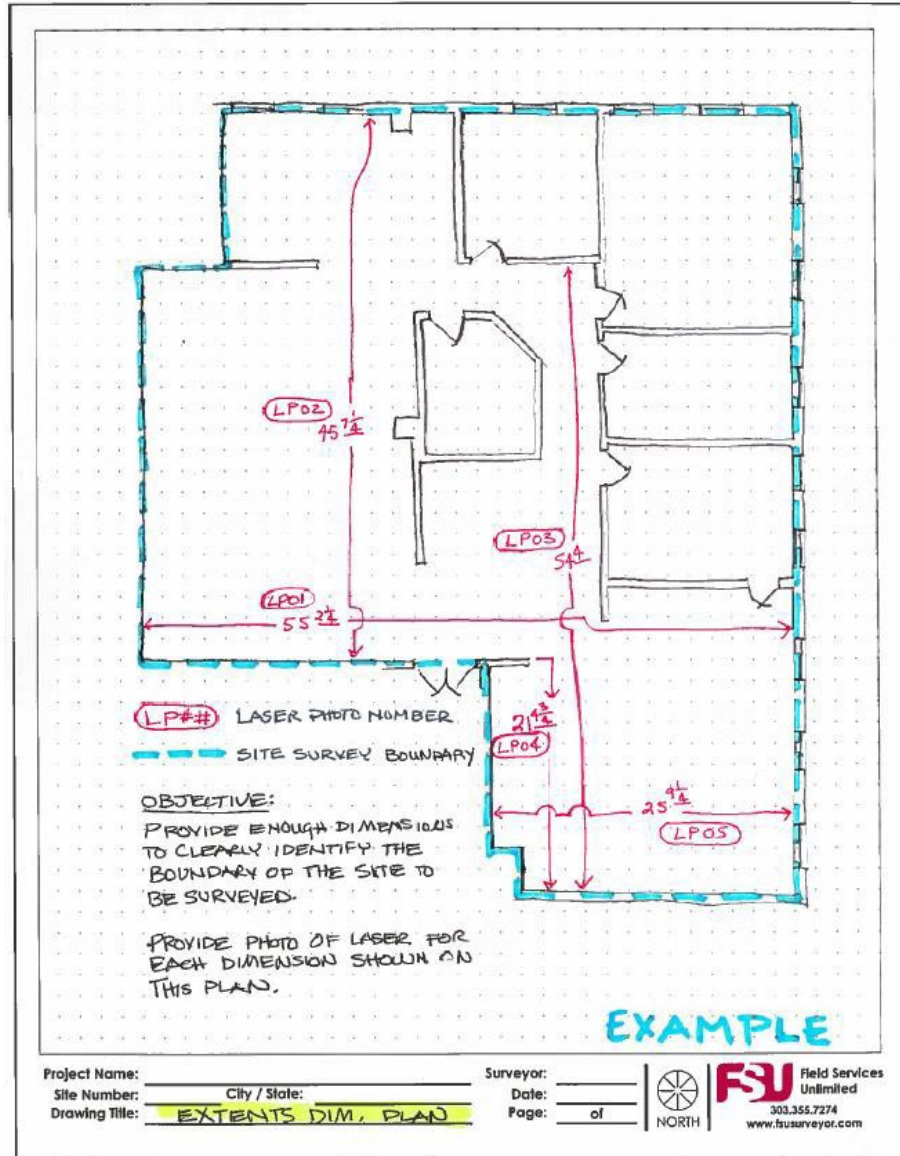 LP02
45 7 1/4
LP03
54 4
LP01
55 2 1/4
LP## LASER PHOTO NUMBER
21 4 3/4
LP04
SITE SURVEY BOUNDARY
25 9 1/4
LP05
OBJECTIVE:
PROVIDE ENOUGH DIMENSIONS
TO CLEARLY IDENTIFY THE
BOUNDARY OF THE SITE TO
BE SURVEYED.
PROVIDE PHOTO OF LASER FOR
EACH DIMENSION SHOWN ON
THIS PLAN.
EXAMPLE
Project Name:
Site Number: City / State:
Drawing Title: EXTENTS DIM. PLAN
Surveyor:
Date:
Page: of
NORTH
FSU Field Services
Unlimited
303.355.7274
www.fsusurveyor.com